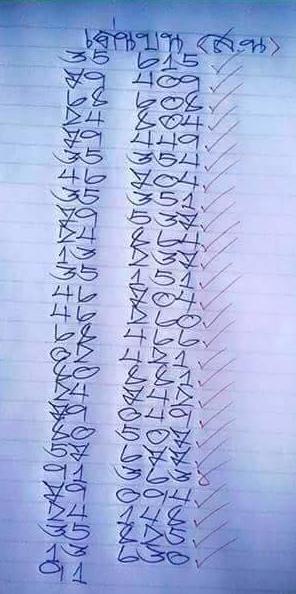 เด่นบน (สน)
35 615
79 409
68 608
24 804
79 449
35 354
46 704
35 351
79 537
24 864
13 237
35 151
46 704
46 260
68 466
02 421
80 881
24
79 049
80 507
57 677
91 363
79 094
24 148
35 825
13 630
91